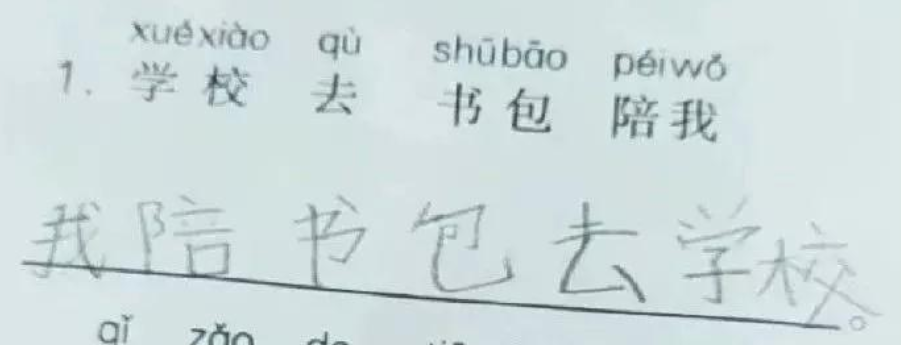 xuéxiào qù shūbāo péiwǒ
1. 学校 去 书包 陪我
我陪书包去学校。
qǐ zǎo